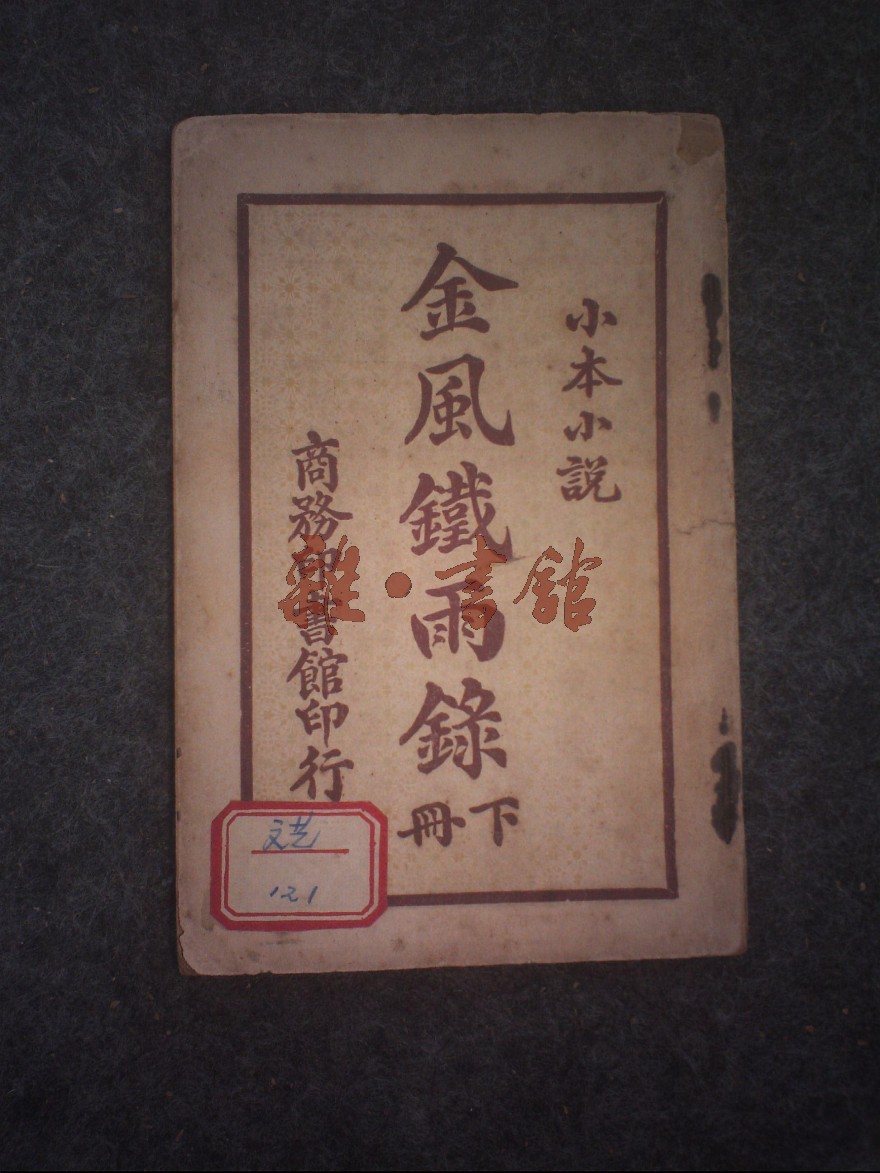 小本小説
金風鐵雨錄
下冊
商務印書館印行
雜·書館
文艺
121